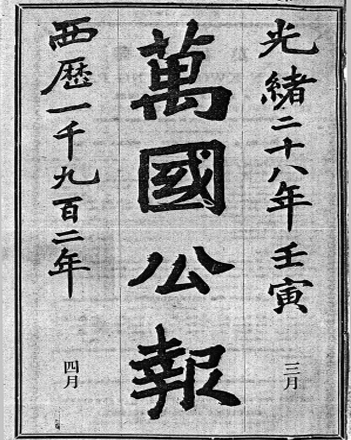 光緒二十八年壬寅 三月
萬國公報
西歷一千九百二年 四月